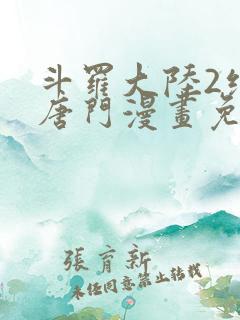 斗羅大陸2
唐門漫畫免
張育新
未经同意禁止转载